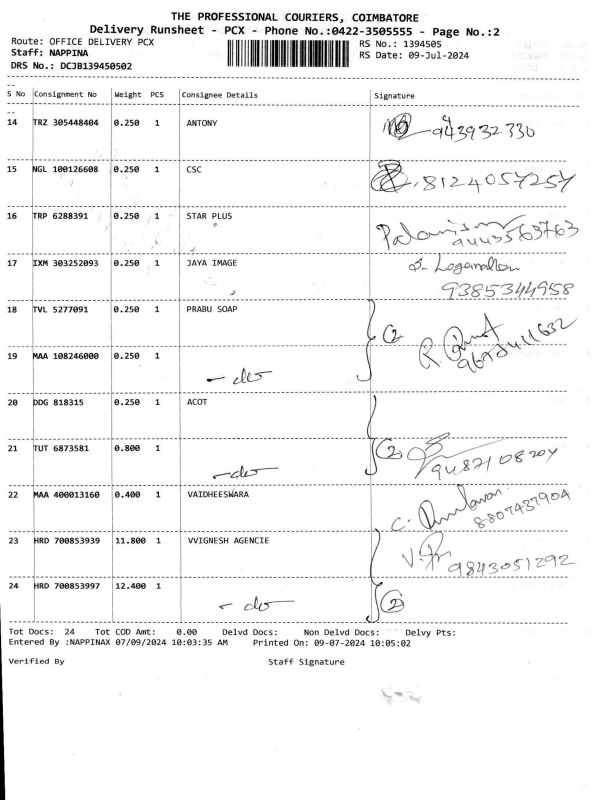 THE PROFESSIONAL COURIERS, COIMBATORE
Delivery Runsheet - PCX - Phone No.:0422-3505555 - Page No.:2
Route: OFFICE DELIVERY PCX RS No.: 1394505
Staff: NAPPINA RS Date: 09-Jul-2024
DRS No.: DCJB139450502
S No Consignment No Weight PCS Consignee Details Signature
14 TRZ 305448404 0.250 1 ANTONY
15 NGL 100126608 0.250 1 CSC 8124057257
16 TRP 6288391 0.250 1 STAR PLUS
9443563763
17 IXM 303252093 0.250 1 JAYA IMAGE
9385344958
18 TVL 5277091 0.250 1 PRABU SOAP 2
19 MAA 108246000 0.250 1
- do
20 DDG 818315 0.250 1 ACOT
21 TUT 6873581 0.800 1 2
- do
22 MAA 400013160 0.400 1 VAIDHEESWARA
8807437904
23 HRD 700853939 11.800 1 VVIGNESH AGENCIE
9843051292
24 HRD 700853997 12.400 1
- do 2
Tot Docs: 24 Tot COD Amt: 0.00 Delvd Docs: Non Delvd Docs: Delvy Pts:
Entered By :NAPPINAX 07/09/2024 10:03:35 AM Printed On: 09-07-2024 10:05:02
Verified By Staff Signature